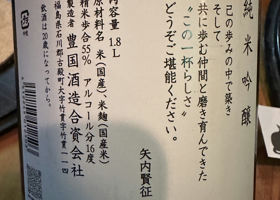 純米吟醸
己の歩みの中で築き
そして
共に歩む仲間と磨き育んできた
“この一杯らしさ”
どうぞご堪能ください。
矢内賢征
内容量 1.8L
原材料名 米(国産)、米麹(国産米)
精米歩合55% アルコール分16度
製造者 豊国酒造合資会社
福島県石川郡古殿町大字竹貫字竹貫一一四
飲酒は20歳になってから。